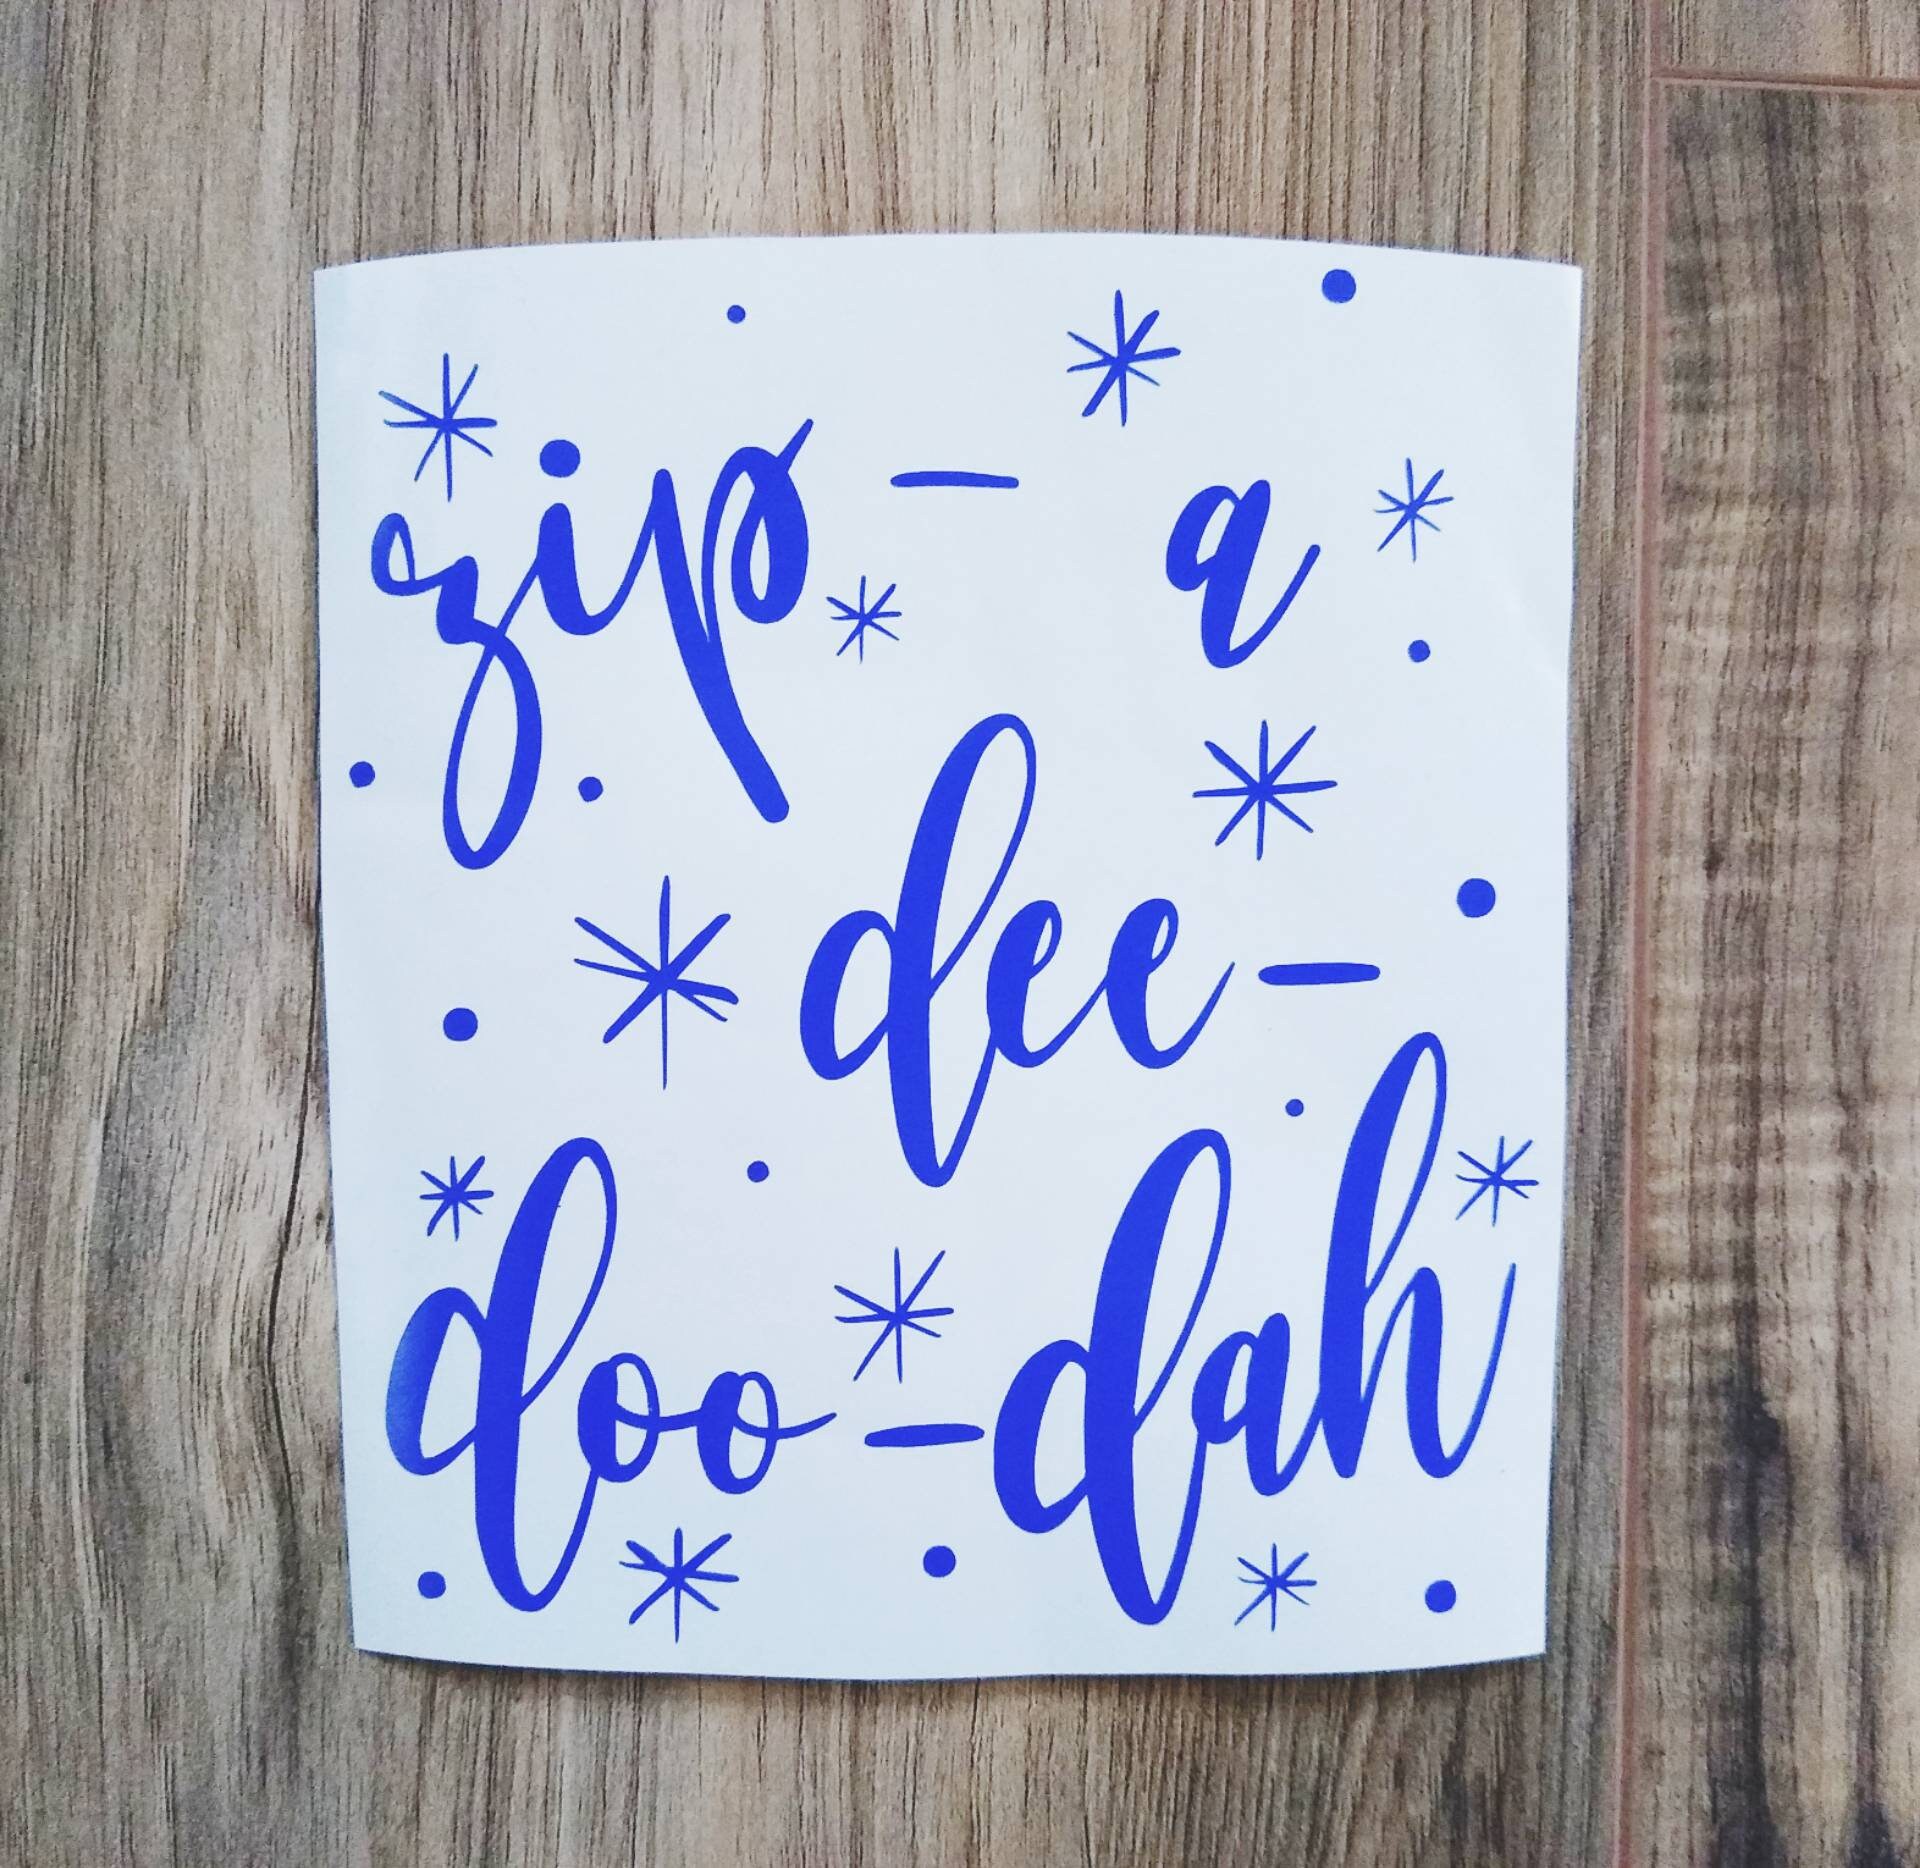 zip- a
dee-
doo-dah